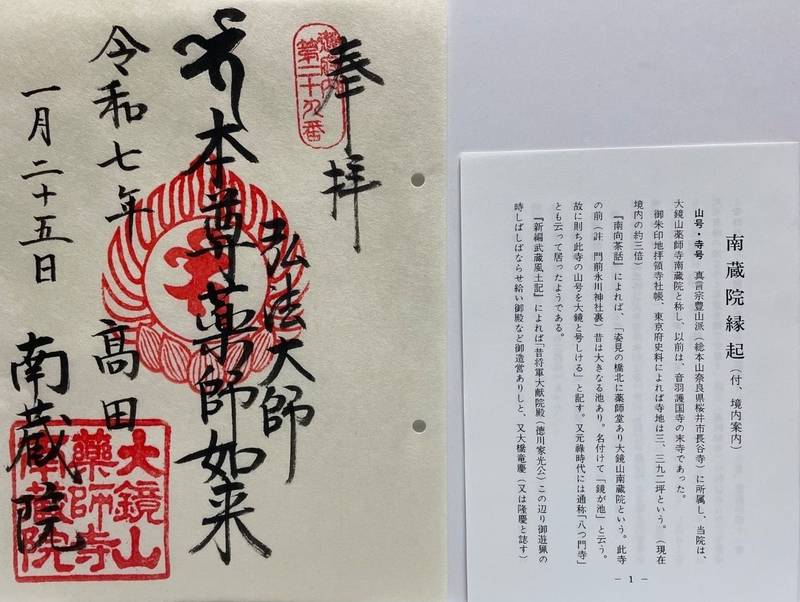 奉拝
御府内
第二十九番
弘法大師
本尊薬師如来
令和七年
髙田
一月二十五日
南蔵院
大鏡山
薬師寺
南蔵院
南蔵院縁起(付、境内案内)
山号・寺号 真言宗豊山派(総本山奈良県桜井市長谷寺)に所属し、当院は、
大鏡山薬師寺南蔵院と称し、以前は、音羽護国寺の末寺であった。
御朱印地拝領寺社帳、東京府史料によれば寺地は三、三九二坪という。(現在
境内の約三倍)
『南向茶話』によれば、「姿見の橋北に薬師堂あり大鏡山南蔵院という。此寺
の前(註 門前氷川神社裏)昔は大きなる池あり。名付けて「鏡が池」と云う。
故に則ち此寺の山号を大鏡と号しける」と記す。又元禄時代には通称「八つ門寺」
とも云って居ったようである。
『新編武蔵風土記』によれば「昔将軍大猷院殿(徳川家光公)この辺り御遊猟の
時しばしばならせ給い御殿など御造営ありしと、又大橋竜慶(又は隆慶と誌す)
− 1 −